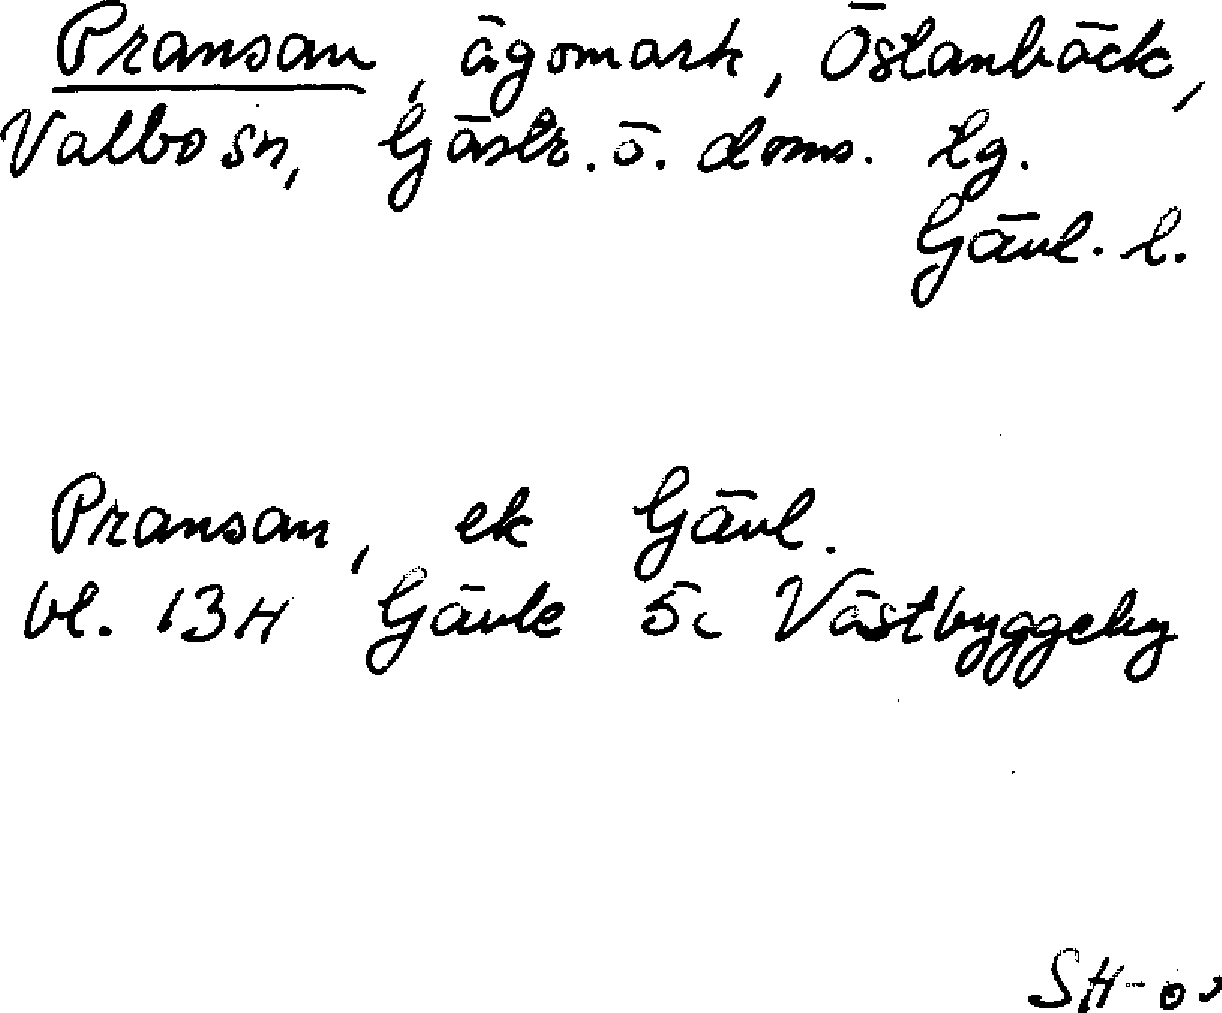 Pransan, ägomark, Östanbäck,
Valbo sn, Gästr. ö. doms. tg.
Gävl. l.
Pransan, ek Gävl.
bl. 13H Gävle 5c Västbyggeby